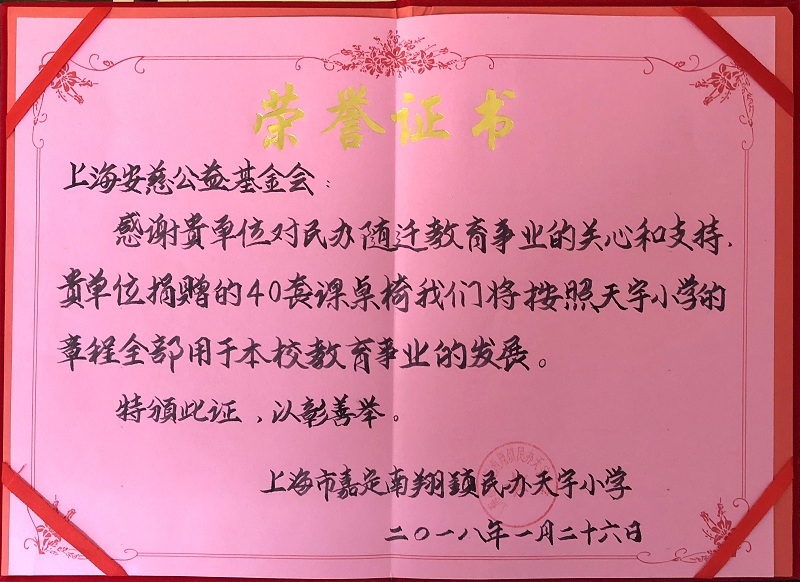 荣誉证书
上海安慈公益基金会：
感谢貴单位对民办随迁教育事业的关心和支持，
貴单位捐赠的40套课桌椅我们将按照天宇小学的
章程全部用于本校教育事业的发展。
特頒此证，以彰善举。
上海市嘉定南翔鎮民办天宇小学
二〇一八年一月二十六日